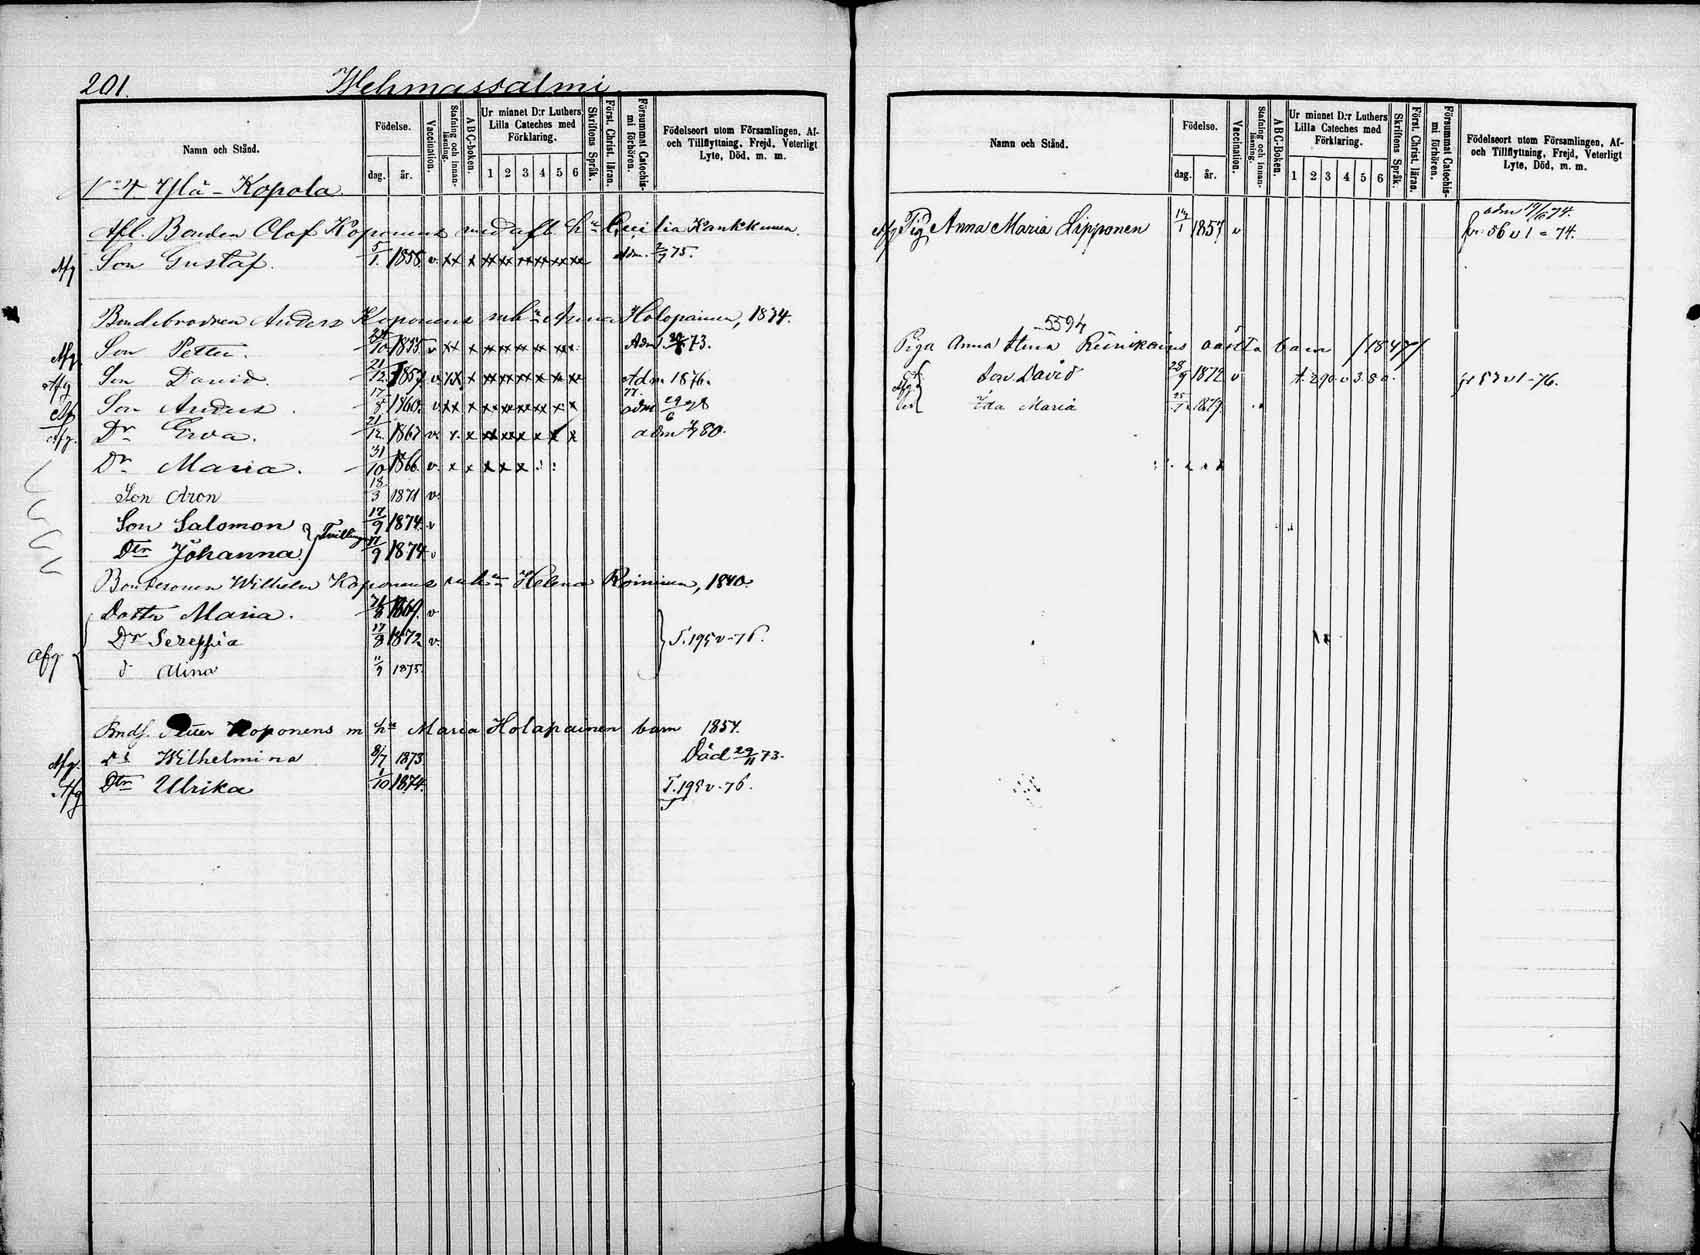 201.
Wehmassalmi
Namn och Stånd.
Födelse.
dag.
år.
Vaccination.
Stafning och innanläsning.
ABC-boken.
Ur minnet D:r Luthers Lilla Cateches med Förklaring.
1 2 3 4 5 6
Skriftens Språk.
Först. Christ. läran.
Försummat Catechismi förhören.
Födelseort utom Församlingen, Af- och Tillflyttning, Frejd, Veterligt Lyte, Död, m. m.
Ylä-Kopola
Afl. Bonden Olof Koponens med afl. h:u Cecilia Kankkunen.
Afg Son Gustaf. 5/1 1858 v. xx x xx xx xx xx xx xx Adm. 75.
Bondebrodren Anders Koponens m h:u Anna Holopainen, 1834.
Afg Son Petter. 1855 v Adm 73.
Afg Son David. 21/12 1857 v Adm 1876.
Son Anders. 17/8 1860 v adm 29/6 78
Afg. Dr Eva. 21/12 v. adm 80.
Dr Maria. 31/10 1866 v.
Son Aron 18/3 1871 v.
Son Salomon 17/9 1874 v
Dtr Johanna } Tvillingar 17/9 1874 v
Bondesonen Wilhelm Koponens m h:u Helena Roininen, 1840.
Dotter Maria. 1869 v
Afg Dr Serefia 17/8 1872 v. T. 195 v-76.
d Alina 11/9 1875.
Bnds. Petter Koponens m h:u Maria Holapainen barn 1854.
Afg. Wilhelmina 8/7 1873 Död 29/11 73.
Afg Dtr Ulrika 1/10 1874. T. 195 v-76.
Namn och Stånd.
Födelse.
dag.
år.
Vaccination.
Stafning och innanläsning.
ABC-Boken.
Ur minnet D:r Luthers Lilla Cateches med Förklaring.
1 2 3 4 5 6
Skriftens Språk.
Först. Christ. läran.
Försummat Catechismi förhören.
Födelseort utom Församlingen, Af- och Tillflyttning, Frejd, Veterligt Lyte, Död, m. m.
Afg Pig Anna Maria Lipponen 1857 v adm 74.
fr. 56 v 1 - 74.
5594
Piga Anna Stina Reinikains oäkta barn /1847/
Son David 28/9 1872 v t. 290 v 3. 80. fr 57 v 1-76.
Ida Maria 1879.